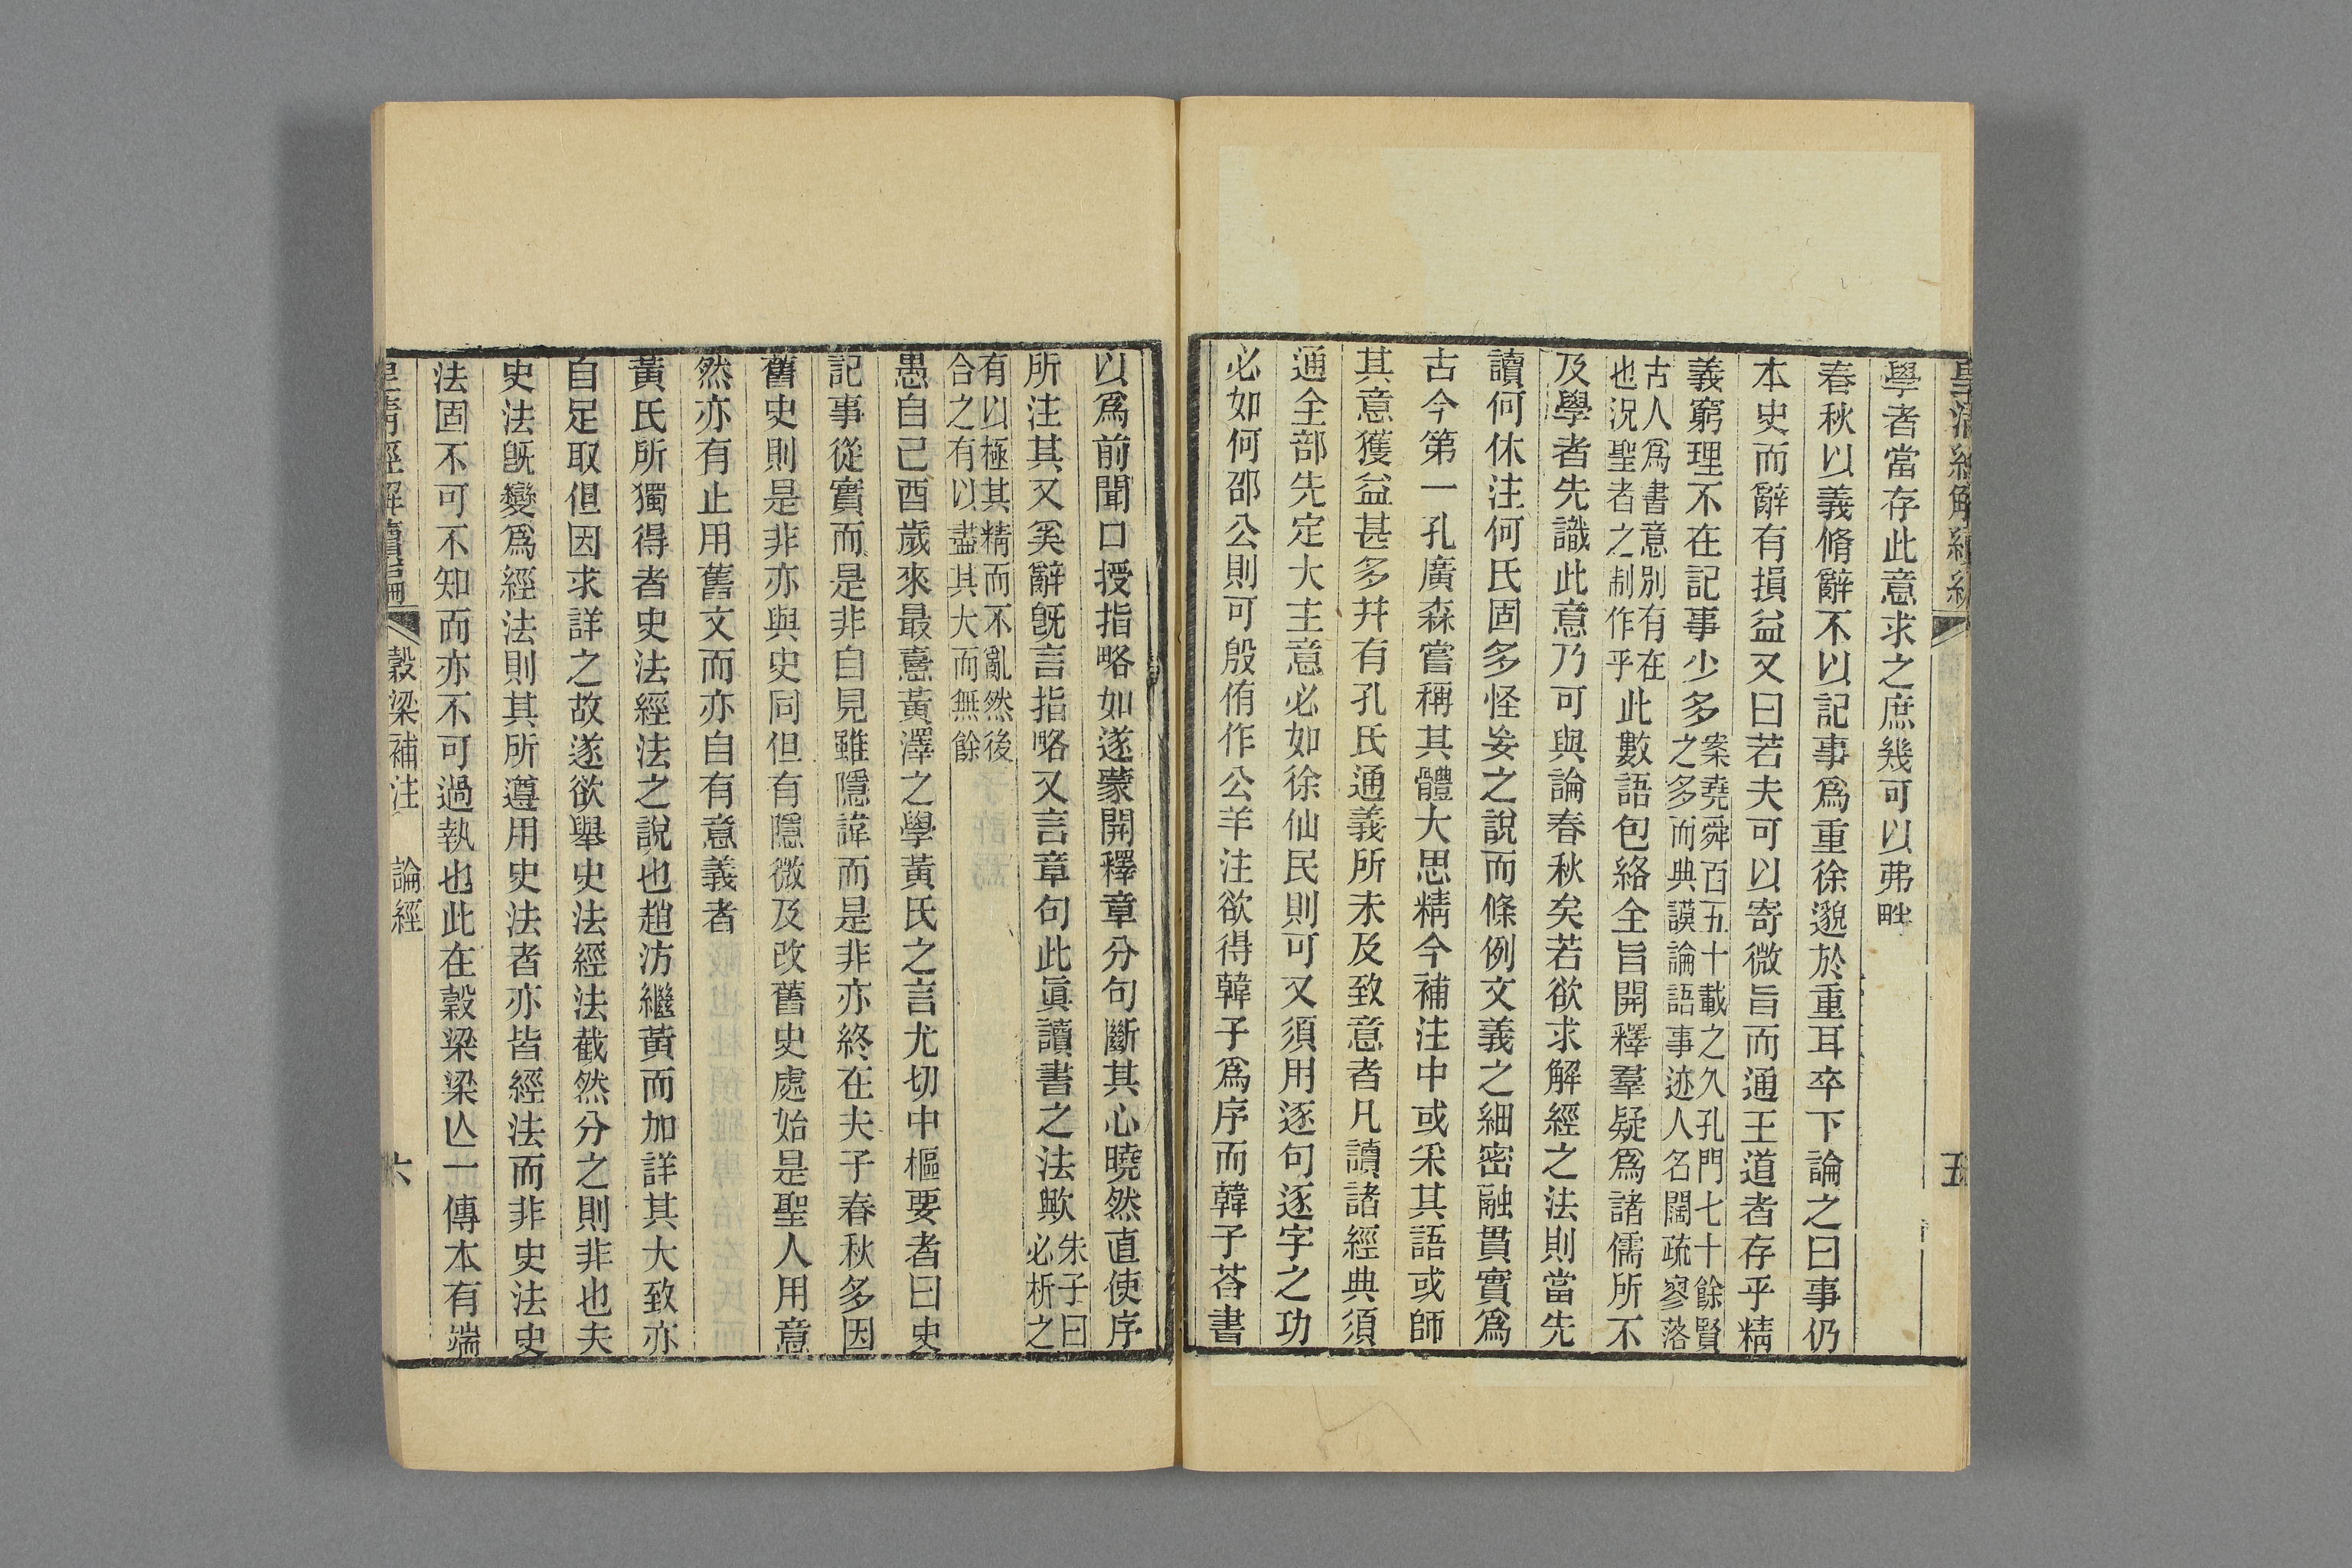 學者當存此意求之庶幾可以弗畔
春秋以義脩辭不以記事爲重徐邈於重耳卒下論之曰事仍
本史而辭有損益又曰若夫可以寄微旨而通王道者存乎精
義窮理不在記事少多案堯舜百五十載之久孔門七十餘賢
之多而典謨論語事迹人名闊疏寥落
古人爲書意別有在
也況聖者之制作乎此數語包絡全旨開釋羣疑爲諸儒所不
及學者先識此意乃可與論春秋矣若欲求解經之法則當先
讀何休注何氏固多怪妄之說而條例文義之細密融貫實爲
古今第一孔廣森嘗稱其體大思精今補注中或采其語或師
其意獲益甚多幷有孔氏通義所未及致意者凡讀諸經典須
通全部先定大主意必如徐仙民則可又須用逐句逐字之功
必如何邵公則可殷侑作公羊注欲得韓子爲序而韓子荅書
以爲前聞口授指略如遂蒙開釋章分句斷其心曉然直使序
所注其又奚辭旣言指略又言章句此眞讀書之法歟朱子曰
必析之
有以極其精而不亂然後
合之有以盡其大而無餘
愚自己酉歲來最憙黃澤之學黃氏之言尤切中樞要者曰史
記事從實而是非自見雖隱諱而是非亦終在夫子春秋多因
舊史則是非亦與史同但有隱微及改舊史處始是聖人用意
然亦有止用舊文而亦自有意義者
黃氏所獨得者史法經法之說也趙汸繼黃而加詳其大致亦
自足取但因求詳之故遂欲舉史法經法截然分之則非也夫
史法旣變爲經法則其所遵用史法者亦皆經法而非史法史
法固不可不知而亦不可過執也此在穀梁梁亾一傳本有端
穀梁補注 論經
六